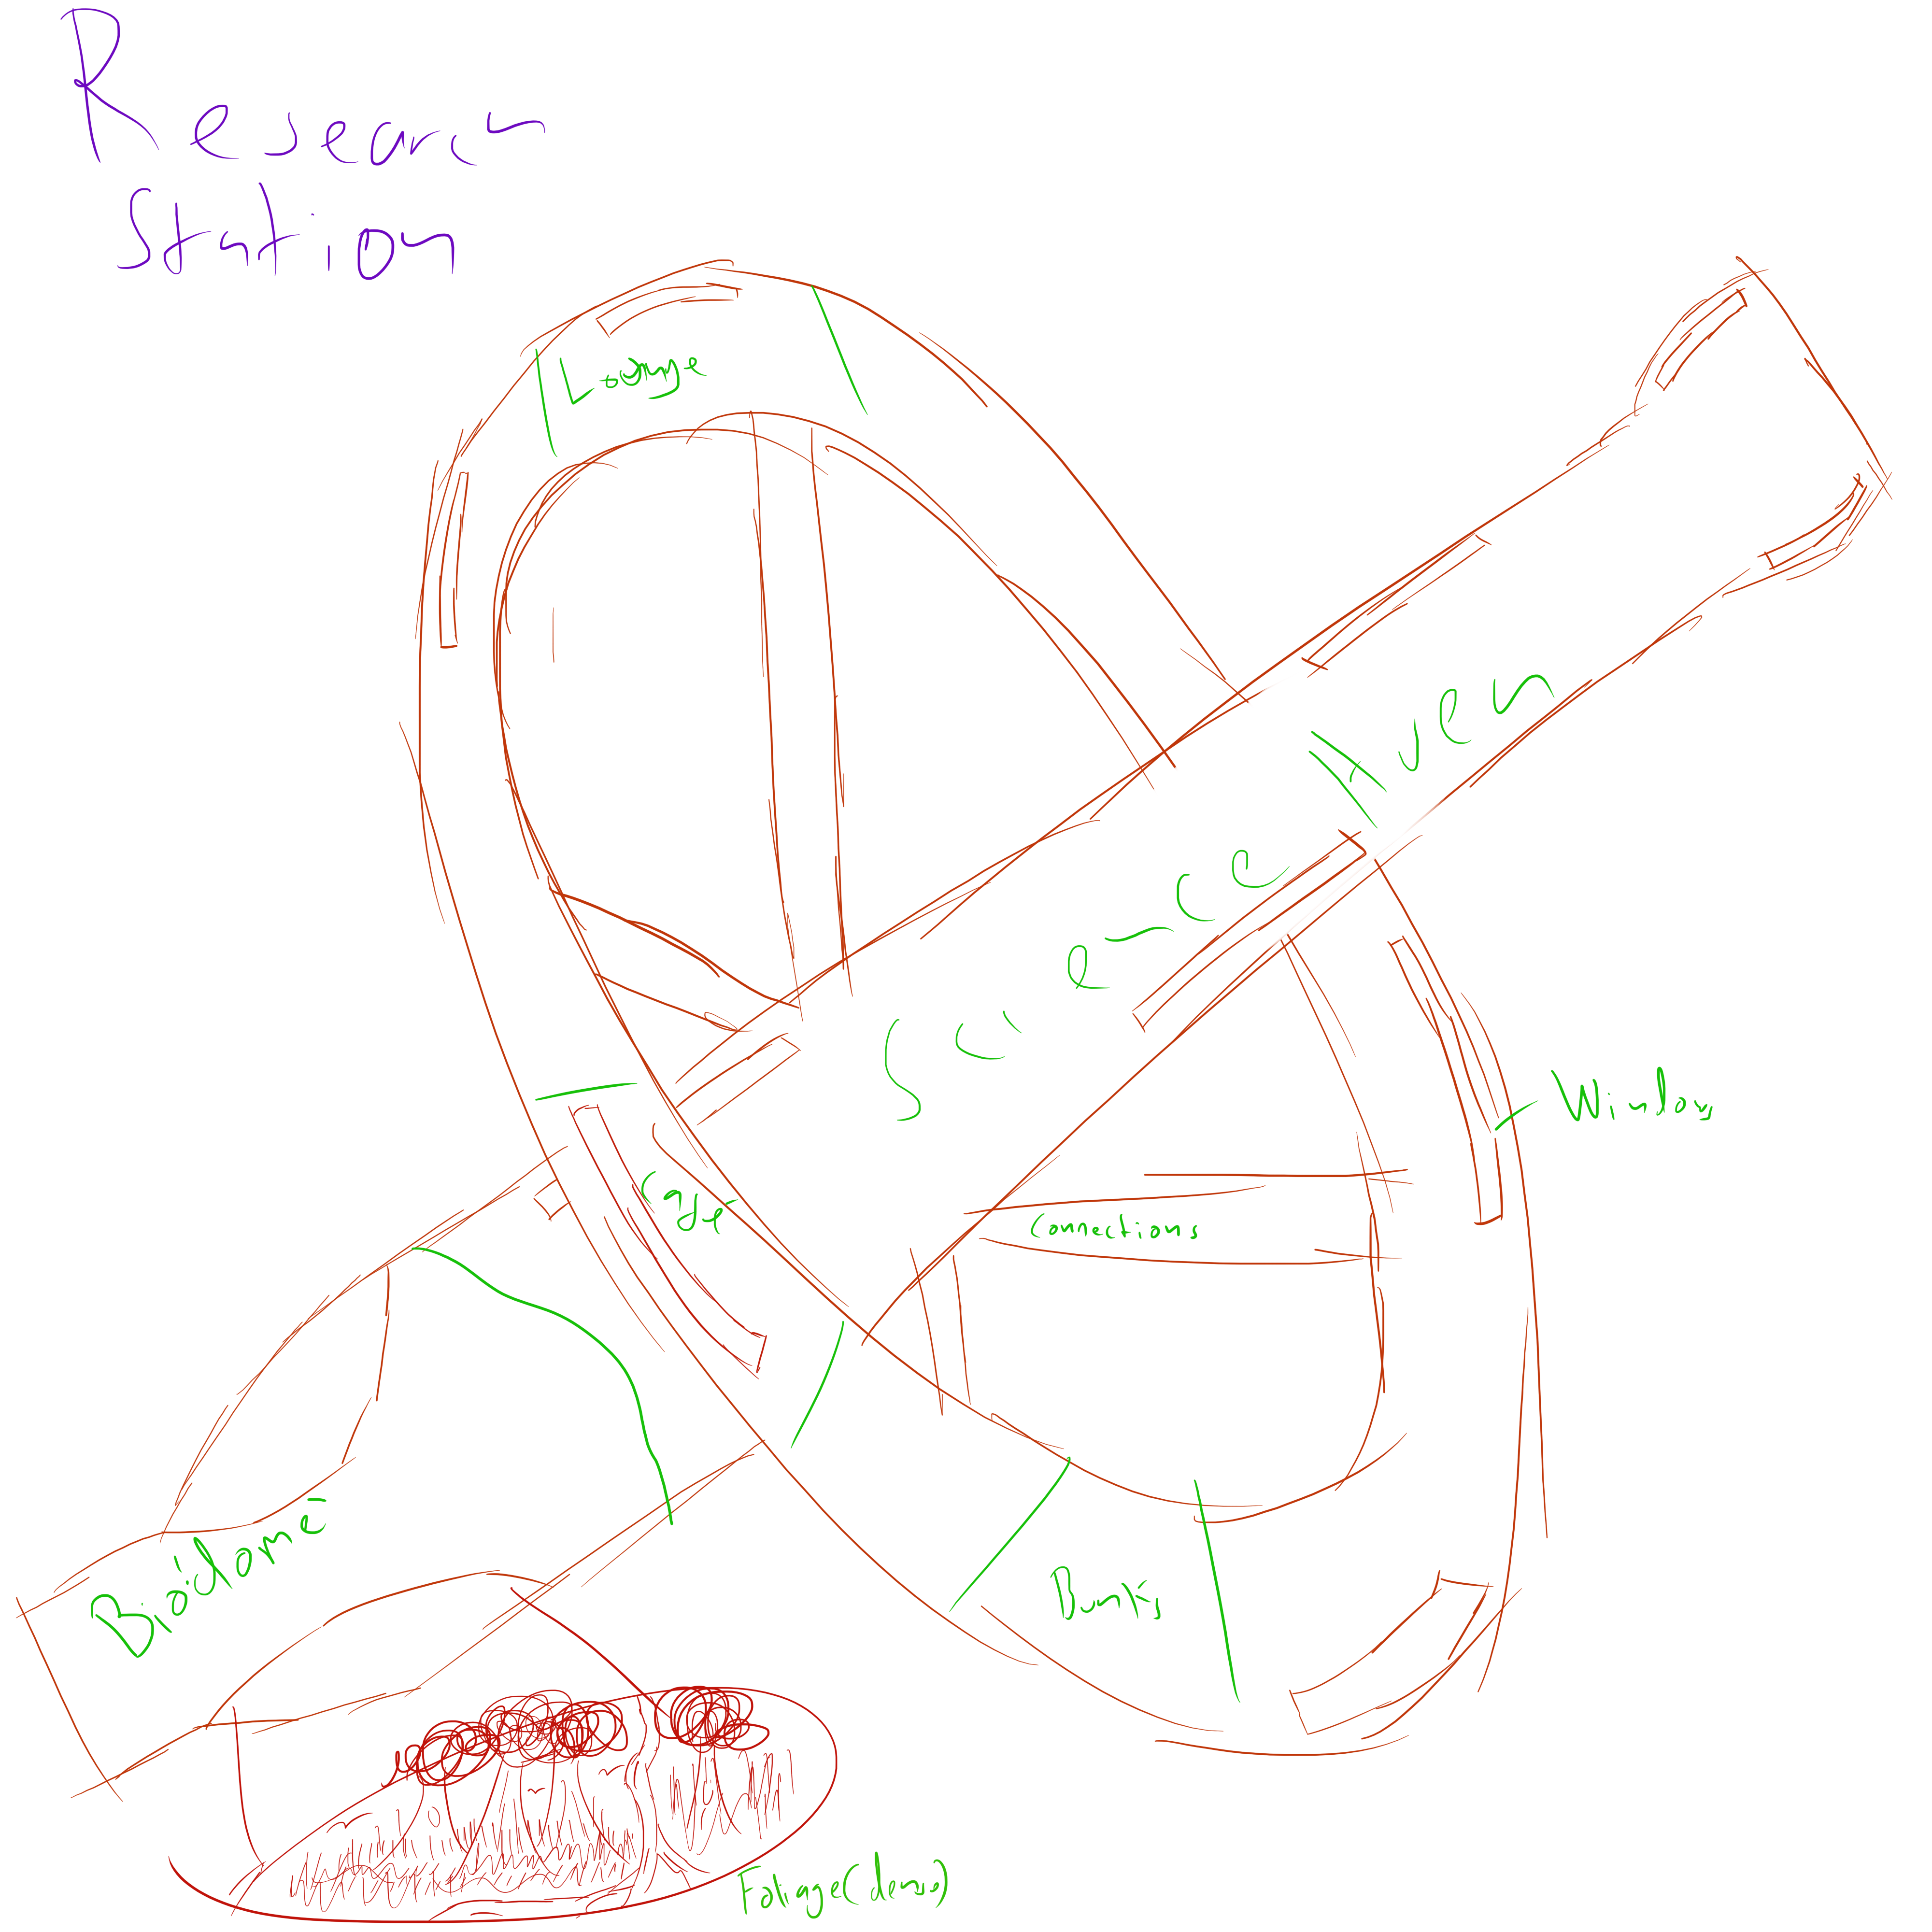 Research
Station
Lounge
Science Area
Windows
Cafe
Connections
Biodome
Bunks
Foliage (dense)